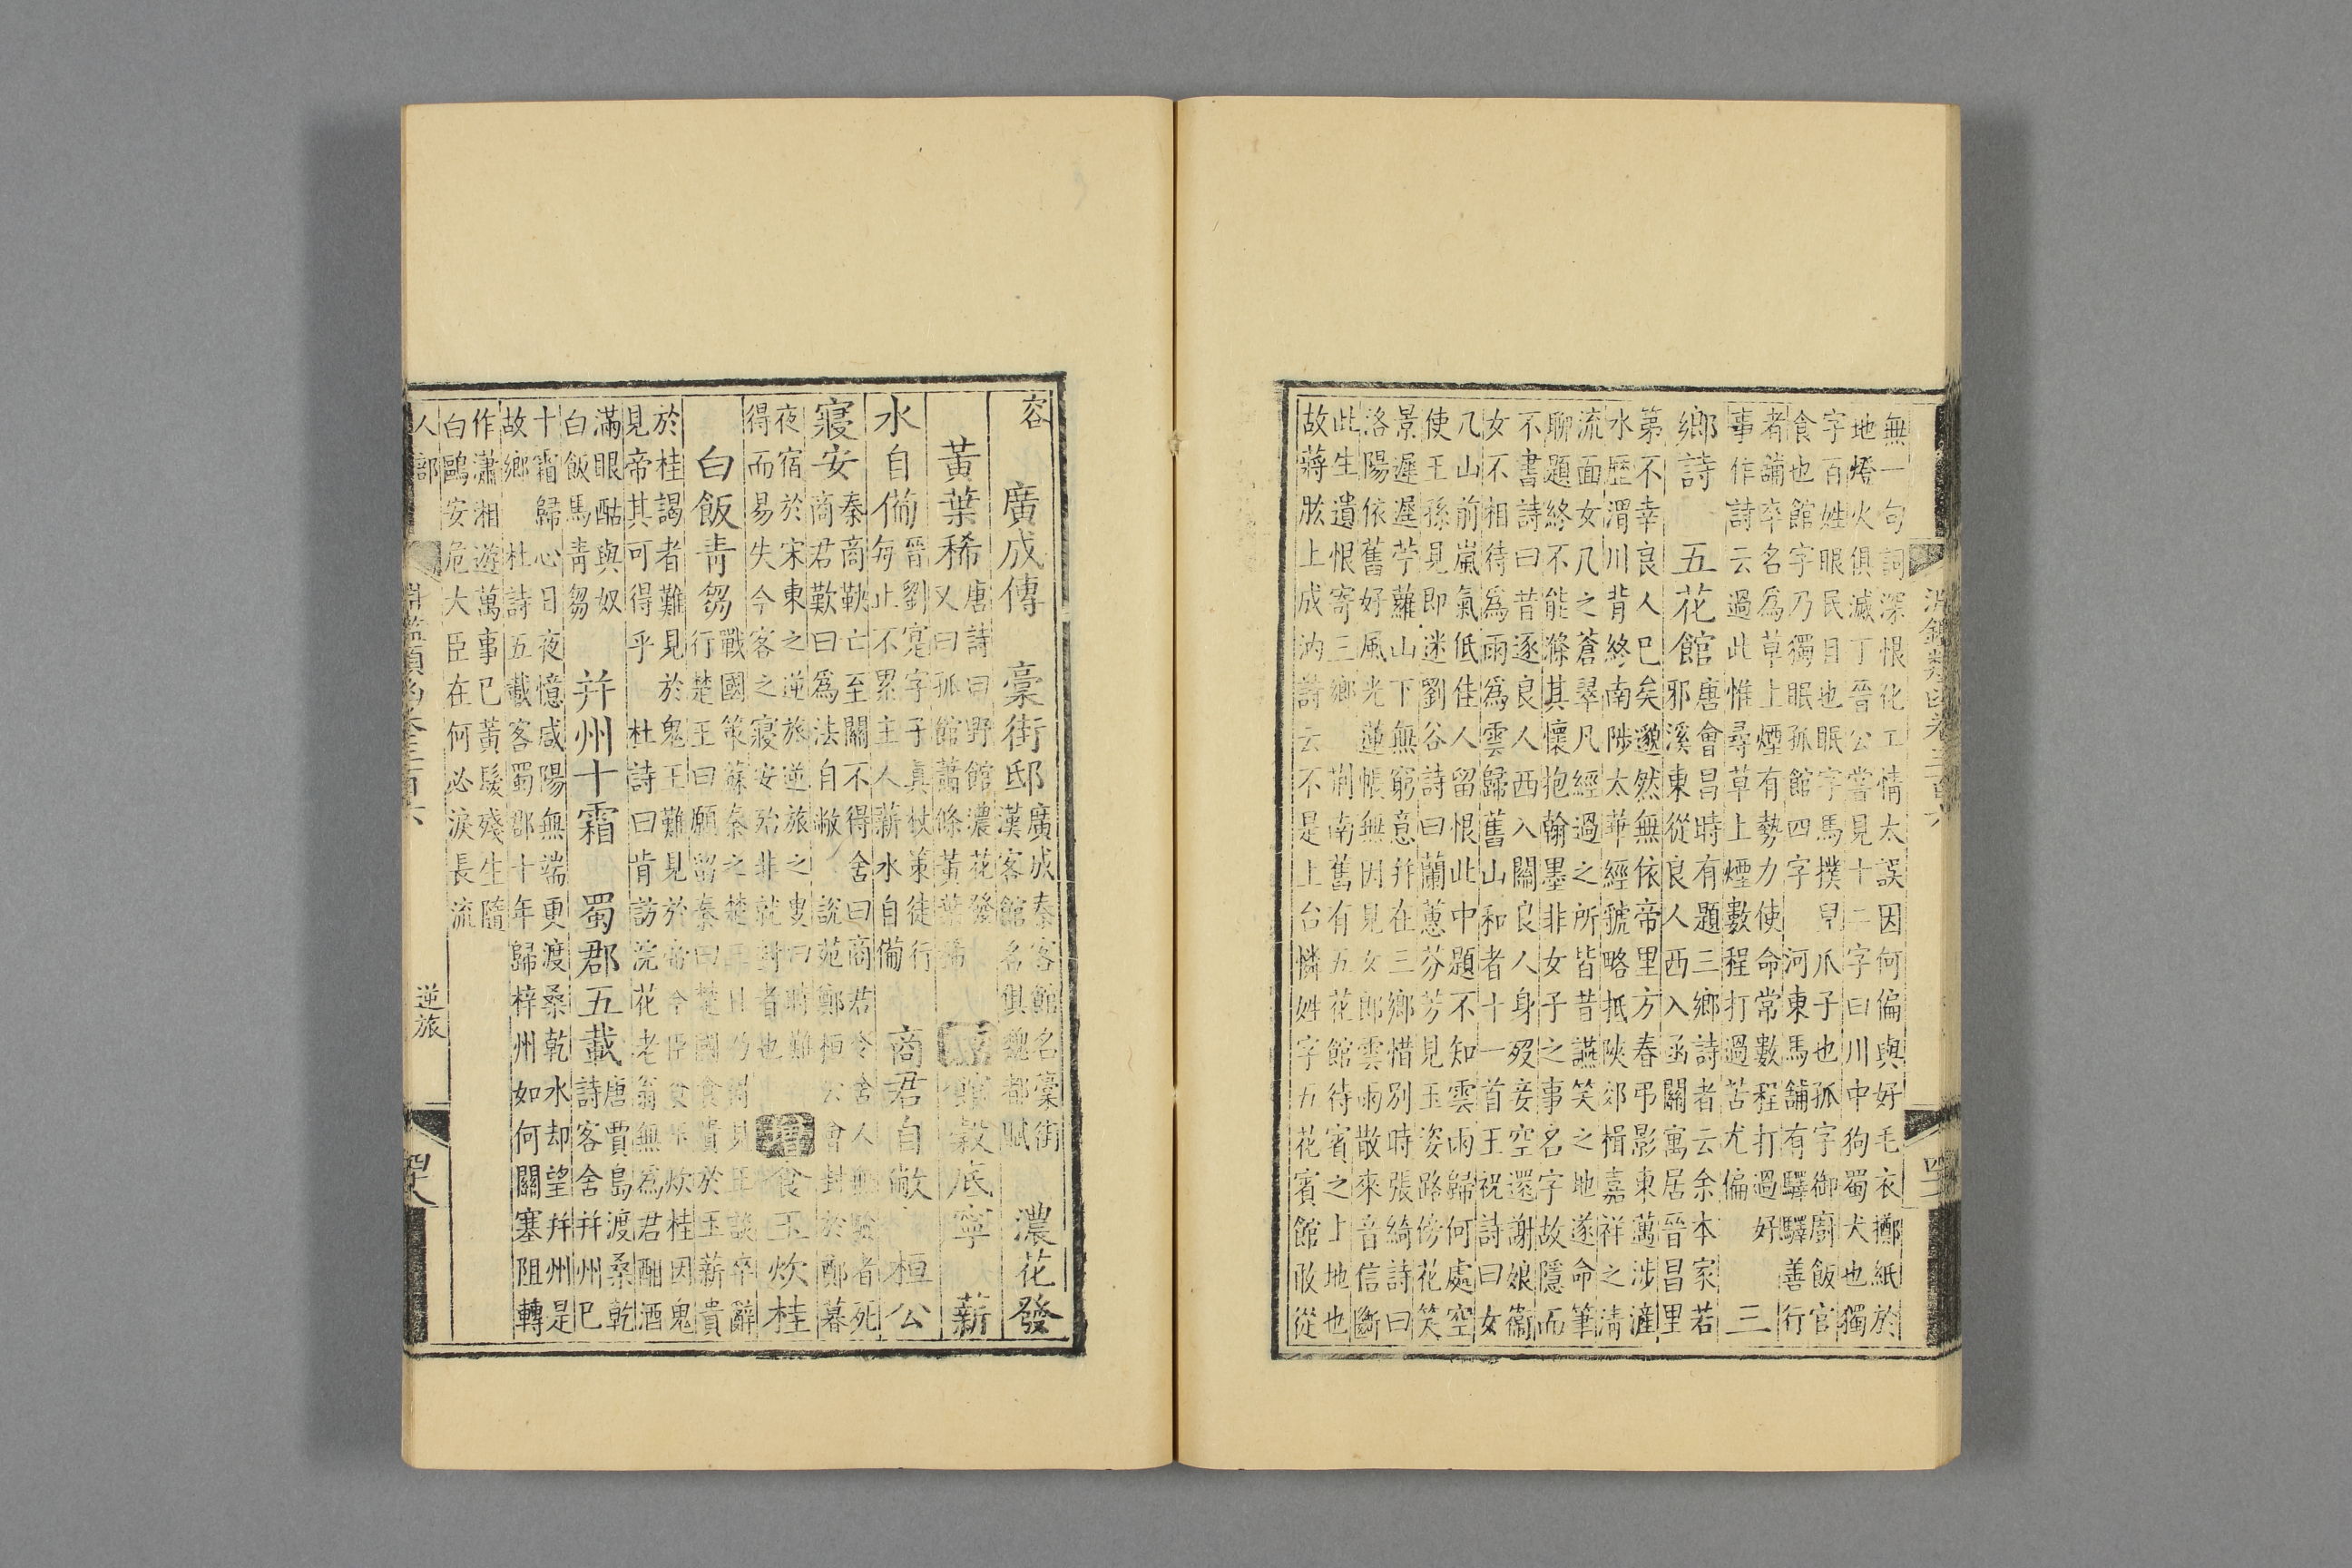 無一句詞深恨化工情太誤因何偏與好毛衣擲紙於
地燈火俱滅丁晉公嘗見十二字曰川中狗蜀犬也獨
字百姓眼民目也眠字馬撲兒爪子也孤字御廚飯官
食也館字乃獨眠孤館四字 河東馬舖有驛驛善行
者舖卒名為草上煙有勢力使命常數程打過好
事作詩云過此惟尋草上煙數程打過苦尤偏 三
鄉詩 五花館
唐會昌時有題三鄉詩者云余本家若
邪溪東從良人西入函關寓居晉昌里
第不幸良人巳矣邈然無依帝里方春弔影東萬涉滻
水歷渭川背終南陟太華經虢略抵陝郊楫嘉祥之清
流面女几之蒼翠凡經過之所皆昔讌笑之地遂命筆
聊題終不能滌其懷抱翰墨非女子之事名字故隱而
不書詩曰昔逐良人西入關良人身歿妾空還謝娘衞
女不相待為雨為雲歸舊山和者十一首王祝詩曰女
几山前嵐氣低佳人留恨此中題不知雲雨歸何處空
使王孫見即迷劉谷詩曰蘭蕙芬芳見玉姿路傍花笑
景遲遲苧蘿山下無窮意幷在三鄉惜別時張綺詩曰
洛陽依舊好風光蓮帳無因見女郎雲雨散來音信斷
此生遺恨寄三鄉 荆南舊有五花館待賓之上地也
故蔣肱上成汭詩云不是上台憐姓字五花賓館敢從
容
廣成傳 藁街邸
廣成秦客館名藁街
漢客館名俱魏都賦
濃花發
黃葉稀
唐詩曰野館濃花發
又曰孤館蕭條黃葉稀
館穀底寧 薪
水自備
晉劉寔字子真杖策徒行
每止不累主人薪水自備
商君自敝 桓公
寢安
秦商鞅亡至關不得舍曰商君令舍人無驗者死
商君歎曰為法自敝 說苑鄭桓公會封於鄭暮
夜宿於宋東之逆旅逆旅之叟曰時難
得而易失今客之寢安殆非就封者也
食玉炊桂
白飯青芻
戰國策蘇秦之楚三日乃得見王談卒辭
行楚王曰願留秦曰楚國食貴於玉薪貴
於桂謁者難見於鬼王難見於帝今臣食玉炊桂因鬼
見帝其可得乎 杜詩曰肯訪浣花老翁無為君酤酒
滿眼酤與奴
白飯馬青芻
幷州十霜 蜀郡五載
唐賈島渡桑乾
詩客舍幷州巳
十霜歸心日夜憶咸陽無端更渡桑乾水却望幷州是
故鄉 杜詩五載客蜀郡十年歸梓州如何關塞阻轉
作瀟相遊萬事巳黃髮殘生隨
白鷗安危大臣在何必淚長流
人部
逆旅